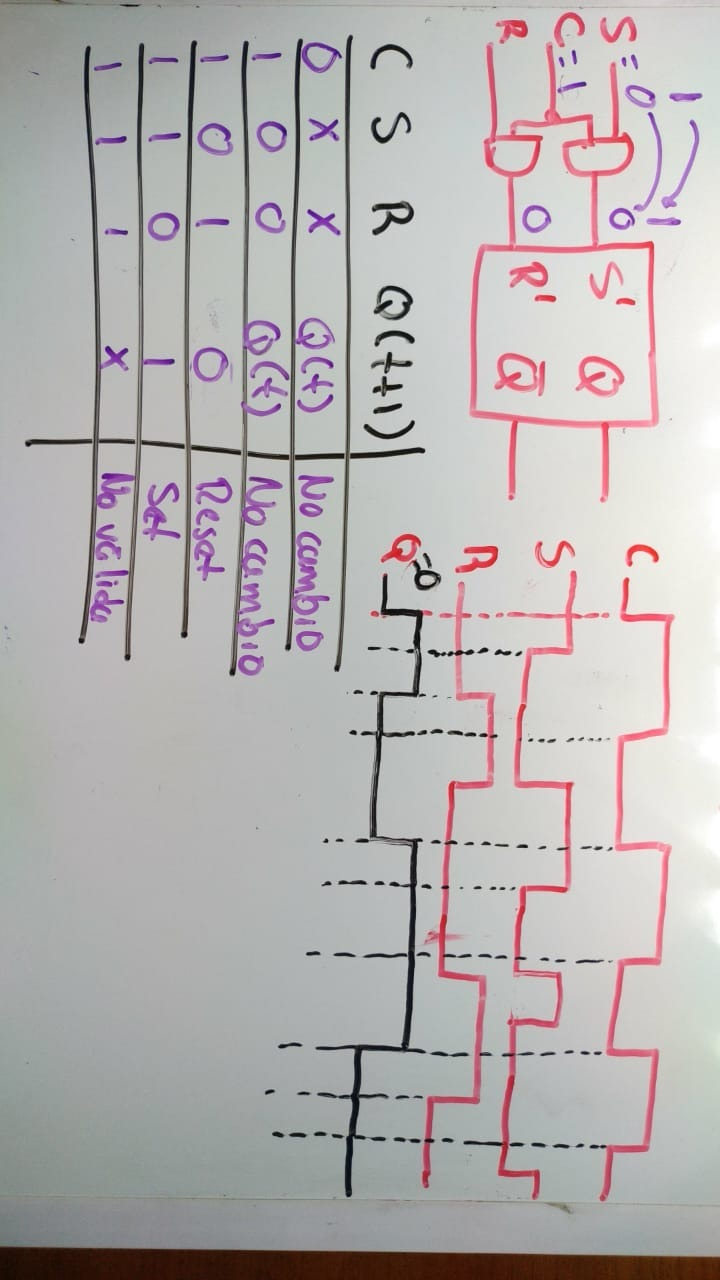 S=0 1
1
C=1
0
R
0
S' Q
R' Q̅
C S R Q(t+1)
0 X X Q(t) No cambio
1 0 0 Q(t) No cambio
1 0 1 0 Reset
1 1 0 1 Set
1 1 1 X No válida
C
S
R
Q=0